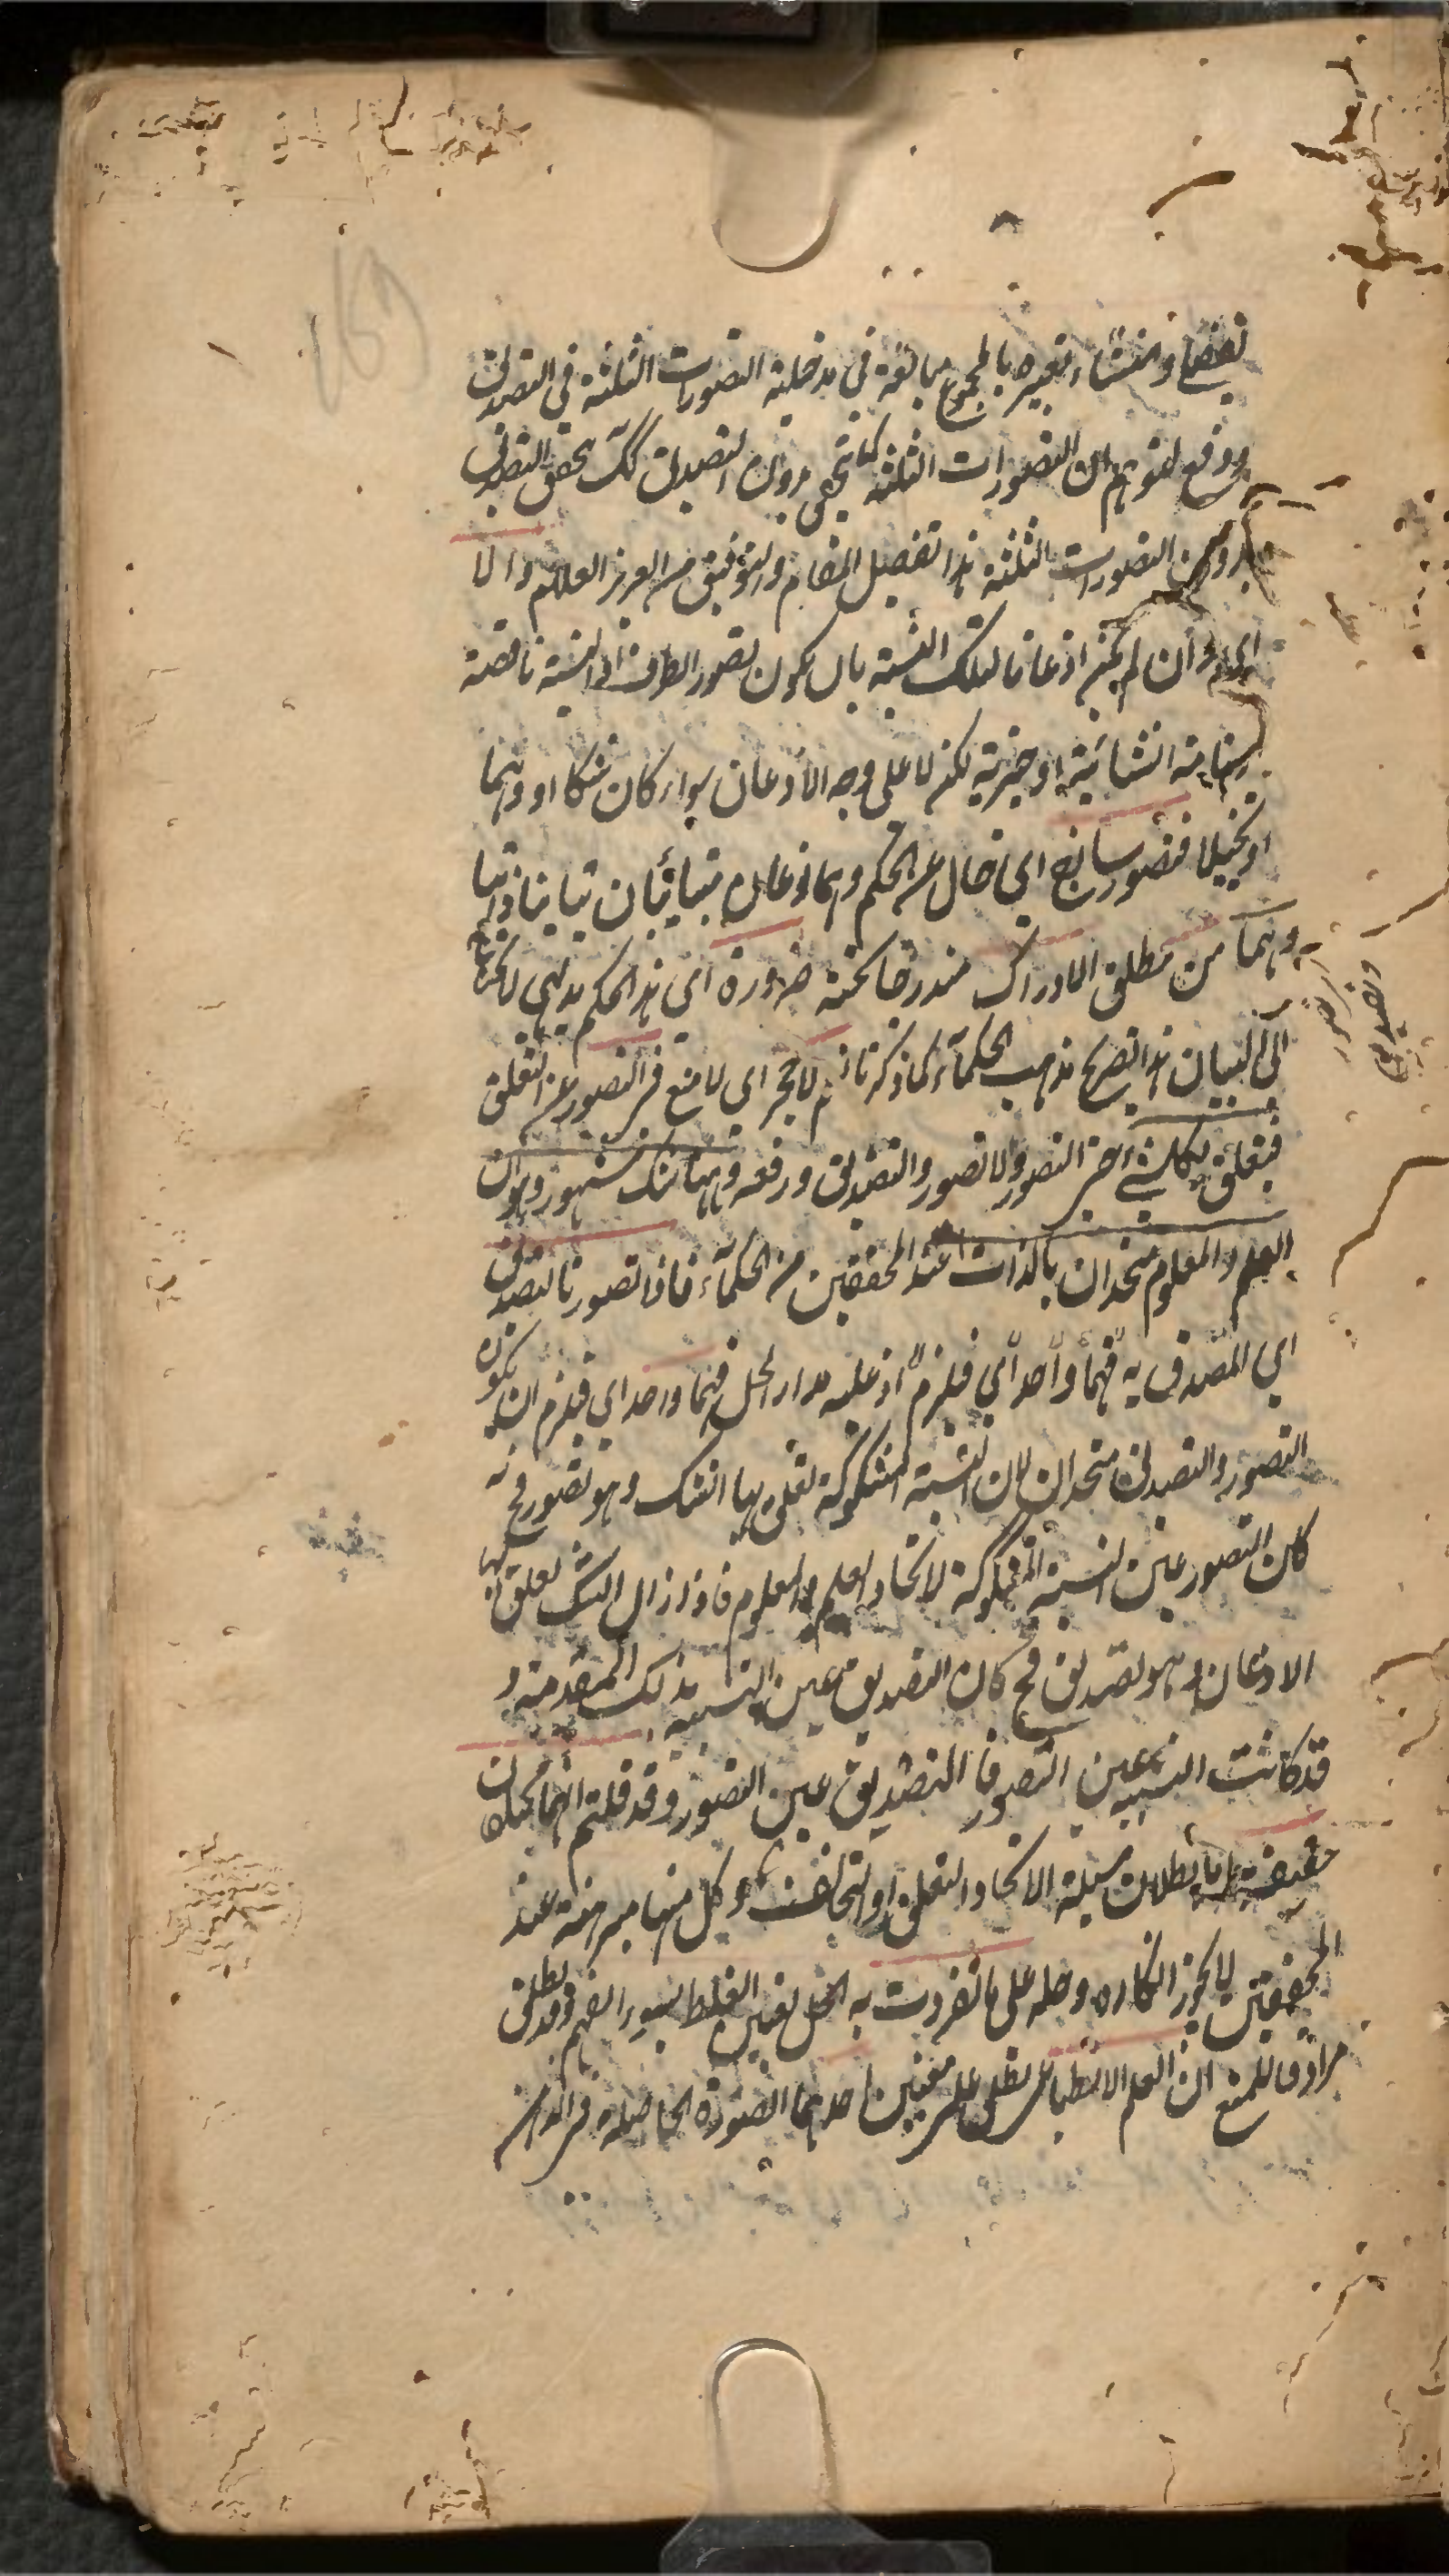 نقضها ومنشاء تعبيره بالمجموع مبالغة في مدخلية التصورات الثلثة في التصديق
ودفع لتوهم ان التصورات الثلثة كما تحقق بدون التصديق كك تحقق التصديق
بدون التصورات الثلثة هذا تفصيل المقام والتوفيق من العزيز العلام والا
اي وان لم يكن اذعانا لتلك النسبة بان يكون تصور الطرف او النسبة ناقصة
او تامة انشائية او خبرية لكن لا على وجه الاذعان سواء كان شكا او وهما
او تخييلا فتصور ساذج اي خال عن الحكم وهما نوعان متبائنان تباينا ذاتيا
من مطلق الادراك مندرجا تحته ضرورة اي هذا الحكم بديهي لا يحتاج
الى البيان هذا تصريح مذهب الحكماء كما ذكرنا نعم لا حجر اي لا منع في التصور عن التعلق
فيتعلق بكل شيء حتى التصور واللاتصور والتصديق ورفعه وههنا شك مشهور وهو ان
العلم والمعلوم متحدان بالذات عند المحققين من الحكماء فاذا تصورنا التصديق
اي المصدق به فهما واحد اي فلزم اذ عليه مدار الحل فهما واحد اي فلزم ان يكون
التصور والتصديق متحدان لان النسبة المشكوكة تعلق بها الشك وهو تصور فح
كان التصور عين النسبة المشكوكة لاتحاد العلم والمعلوم فاذا زال الشك تعلق بها
الاذعان وهو تصديق فح كان التصديق عين النسبة بذلك المقدمة و
قد كانت النسبة عين التصور فالتصديق عين التصور وقد قلتم انهما مختلفان
حقيقة بطلان مسئلة الاتحاد والتعلق او التخالف وكل منها مبرهنة عند
المحققين لا يجوز انكاره وحله على ما تفردت به الحل تعيين الغلط بسوء الفهم وقد يطلق
مرادفا للمنع ان العلم الانطباعي يطلق على معنيين احدهما الصورة الحاصلة في الذهن
وهما
تصور
وتصديق